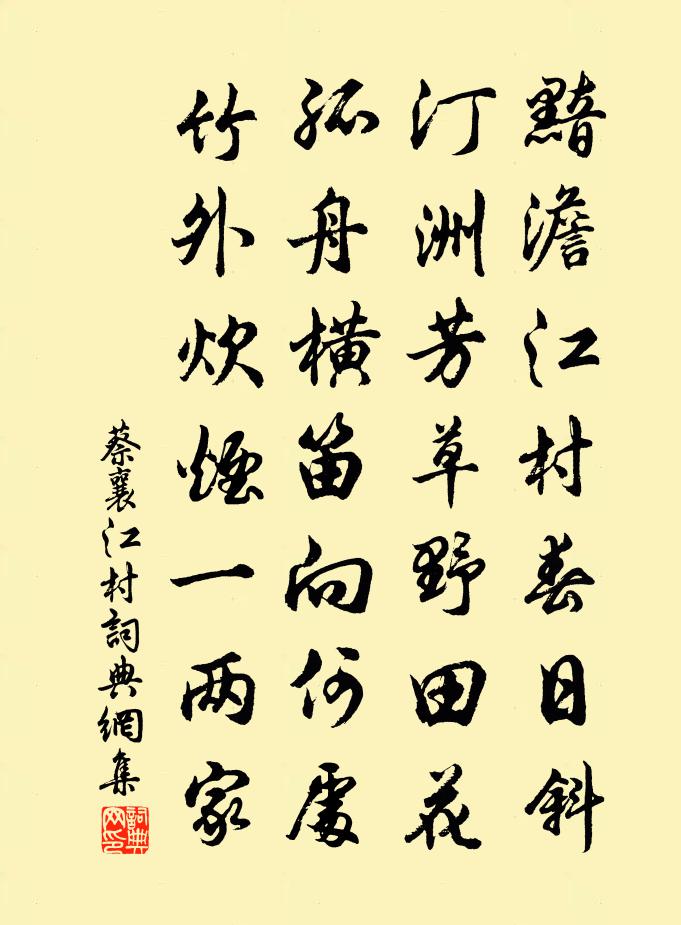 黯澹江村春日斜
汀洲芳草野田花
孤舟橫笛向何處
竹外炊煙一两家
蔡襄江村詞典網集
詞典网印